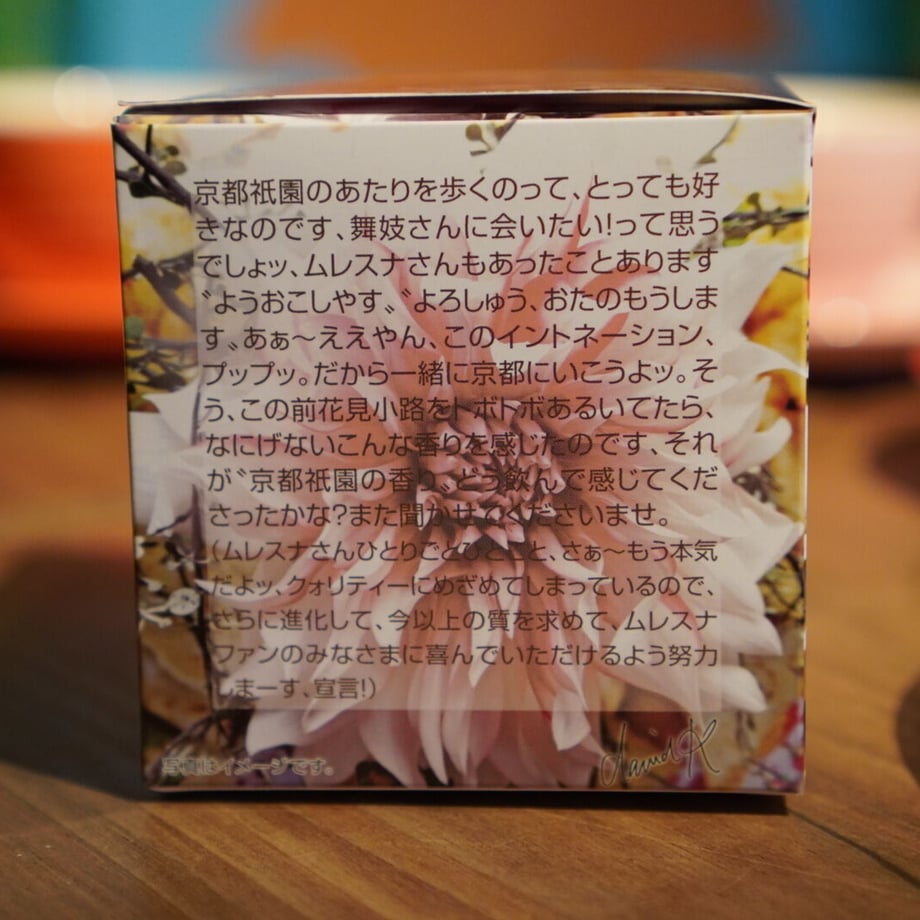 京都祇園のあたりを歩くのって、とっても好
きなのです、舞妓さんに会いたい!って思う
でしょッ、ムレスナさんもあったことあります
〝ようおこしやす〟〝よろしゅう、おたのもうしま
す〟あぁ〜ええやん、このイントネーション、
プップッ。だから一緒に京都にいこうよッ。そ
う、この前花見小路をトボトボあるいてたら、
なにげないこんな香りを感じたのです、それ
が〝京都祇園の香り〟どう飲んで感じてくだ
さったかな?また聞かせてくださいませ。
(ムレスナさんひとりごとひとこと、さぁ〜もう本気
だよッ、クォリティーにめざめてしまっているので、
さらに進化して、今以上の質を求めて、ムレスナ
ファンのみなさまに喜んでいただけるよう努力
しまーす、宣言!)
David K
写真はイメージです。